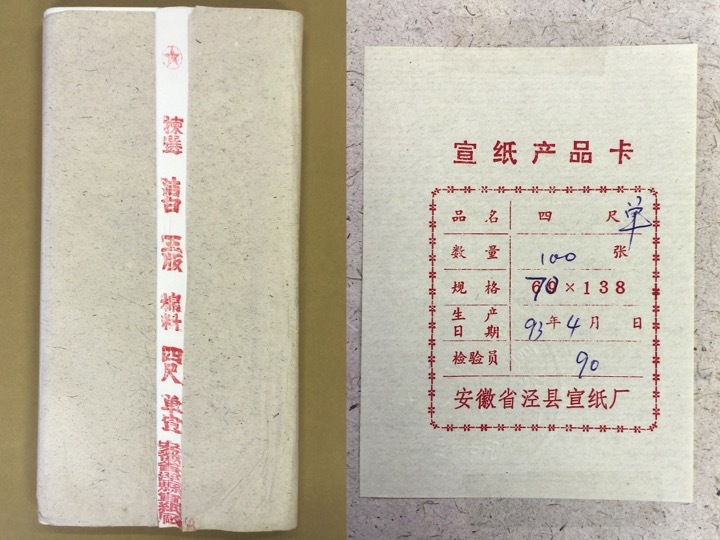 洁白 玉版 棉料 四尺 单宣
宣纸产品卡
品名 四尺单
数量 100 张
规格 70×138
生产日期 93年4月 日
检验员 90
安徽省泾县宣纸厂